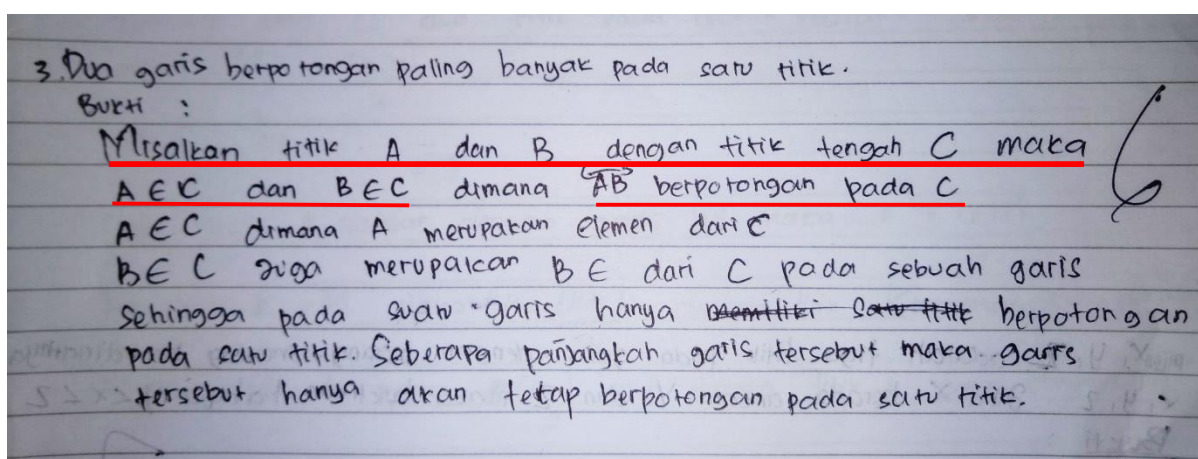 3. Dua garis berpotongan paling banyak pada satu titik.
Bukti :
Misalkan titik A dan B dengan titik tengah C maka
A ∈ C dan B ∈ C dimana AB berpotongan pada C
A ∈ C dimana A merupakan elemen dari C
B ∈ C juga merupakan B ∈ dari C pada sebuah garis
sehingga pada suatu garis hanya memiliki satu titik berpotongan
pada satu titik. Seberapa panjangkah garis tersebut maka garis
tersebut hanya akan tetap berpotongan pada satu titik.